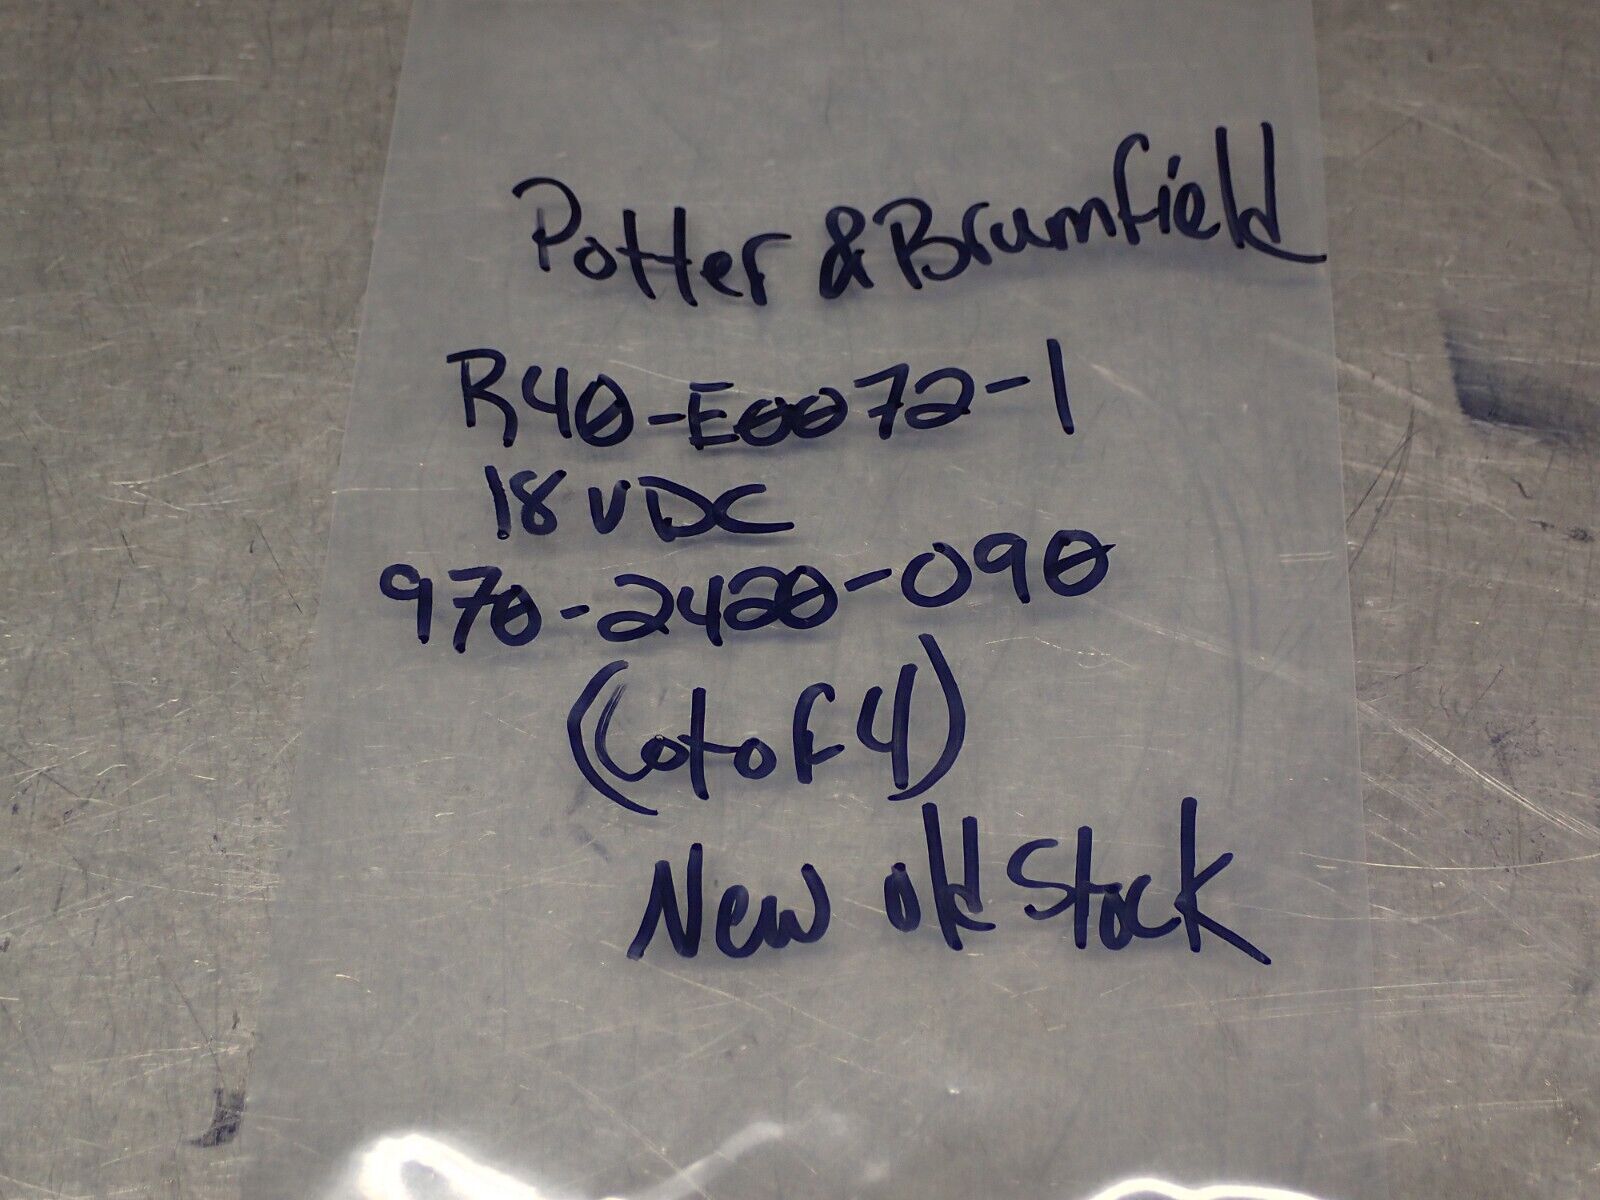 Potter & Brumfield
R40-E0072-1
18 VDC
970-2420-090
(Lot of 4)
New old Stock